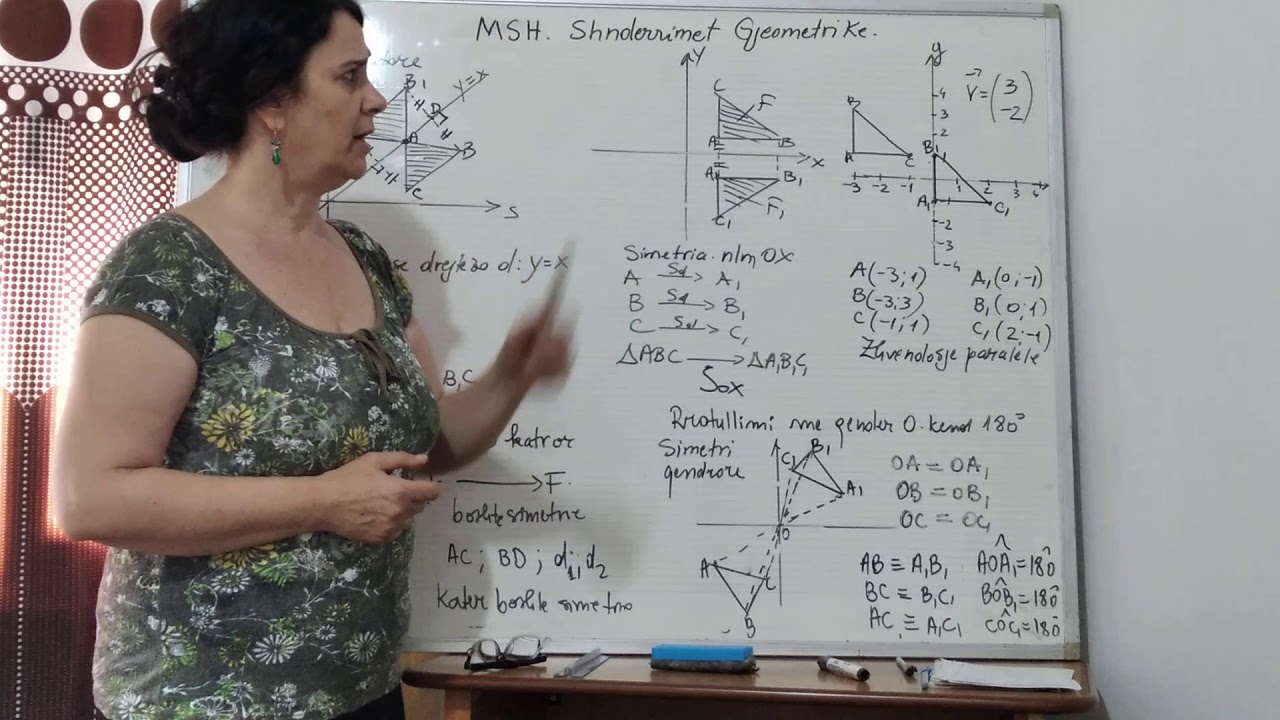 MSH. Shnderrimet Gjeometrike.
B1
y=x
D
A
B
C
S
drejtëzo d: y=x
B,C
katror
F.
boshte simetrie
AC; BD; d1; d2
Kater boshte simetrie
y
C
F
A
B
x
A1
B1
F1
C1
Simetria. nlm OX
A Sd A1
B Sd B1
C Sd C1
ΔABC ΔA1B1C1
Sox
y
V = (3
-2)
4
3
2
B
A
C
B1
-3 -2 -1
1 2 3 4
A1
C1
-2
-3
-4
A(-3;1) A1(0;-1)
B(-3;3) B1(0;1)
C(-1;1) C1(2;-1)
Zhvendosje paralele
Rrotullimi me qender O. kend 180°
Simetri
qendrore
B1
C1
A1
O
A
C
B
OA = OA1
OB = OB1
OC = OC1
AB ≡ A1B1 AOA1=180°
BC ≡ B1C1 BOB1=180°
AC ≡ A1C1 COC1=180°